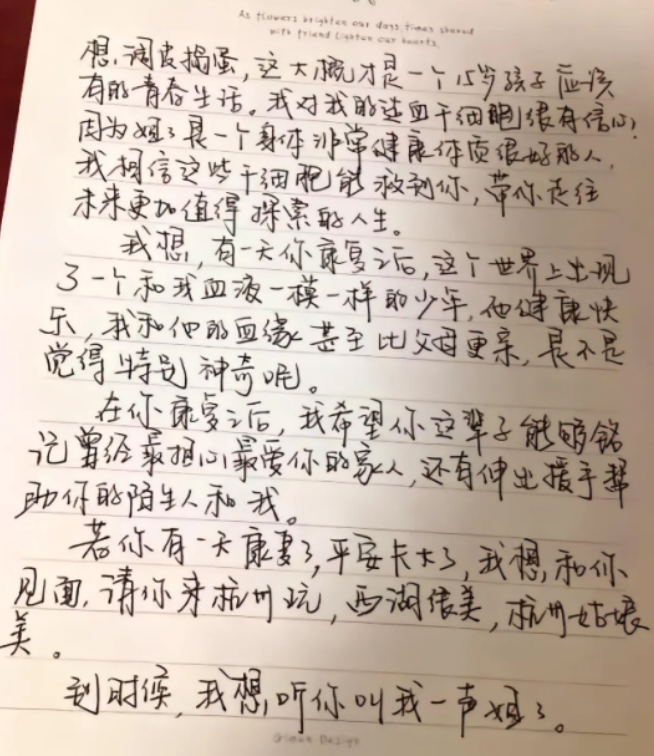 As flowers brighten our days, times shared
with friend lighten our hearts.
想,调皮捣蛋,这大概才是一个15岁孩子应该
有的青春生活。我对我的造血干细胞很有信心,
因为姐姐是一个身体非常健康体质很好的人,
我相信这些干细胞能救到你,带你走往
未来更加值得探索的人生。
我想,有一天你康复之后,这个世界上出现
了一个和我血液一模一样的少年,他健康快
乐,我和他的血缘甚至比父母更亲,是不是
觉得特别神奇呢。
在你康复之后,我希望你这辈子能够铭
记曾经最担心最爱你的家人,还有伸出援手帮
助你的陌生人和我。
若你有一天康复了,平安长大了,我想,和你
见面,请你来杭州玩,西湖很美,杭州姑娘
美。
到时候,我想,听你叫我一声姐姐。